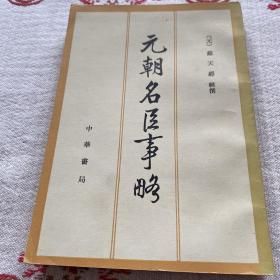 〔元〕蘇天爵輯撰
元朝名臣事略
中華書局